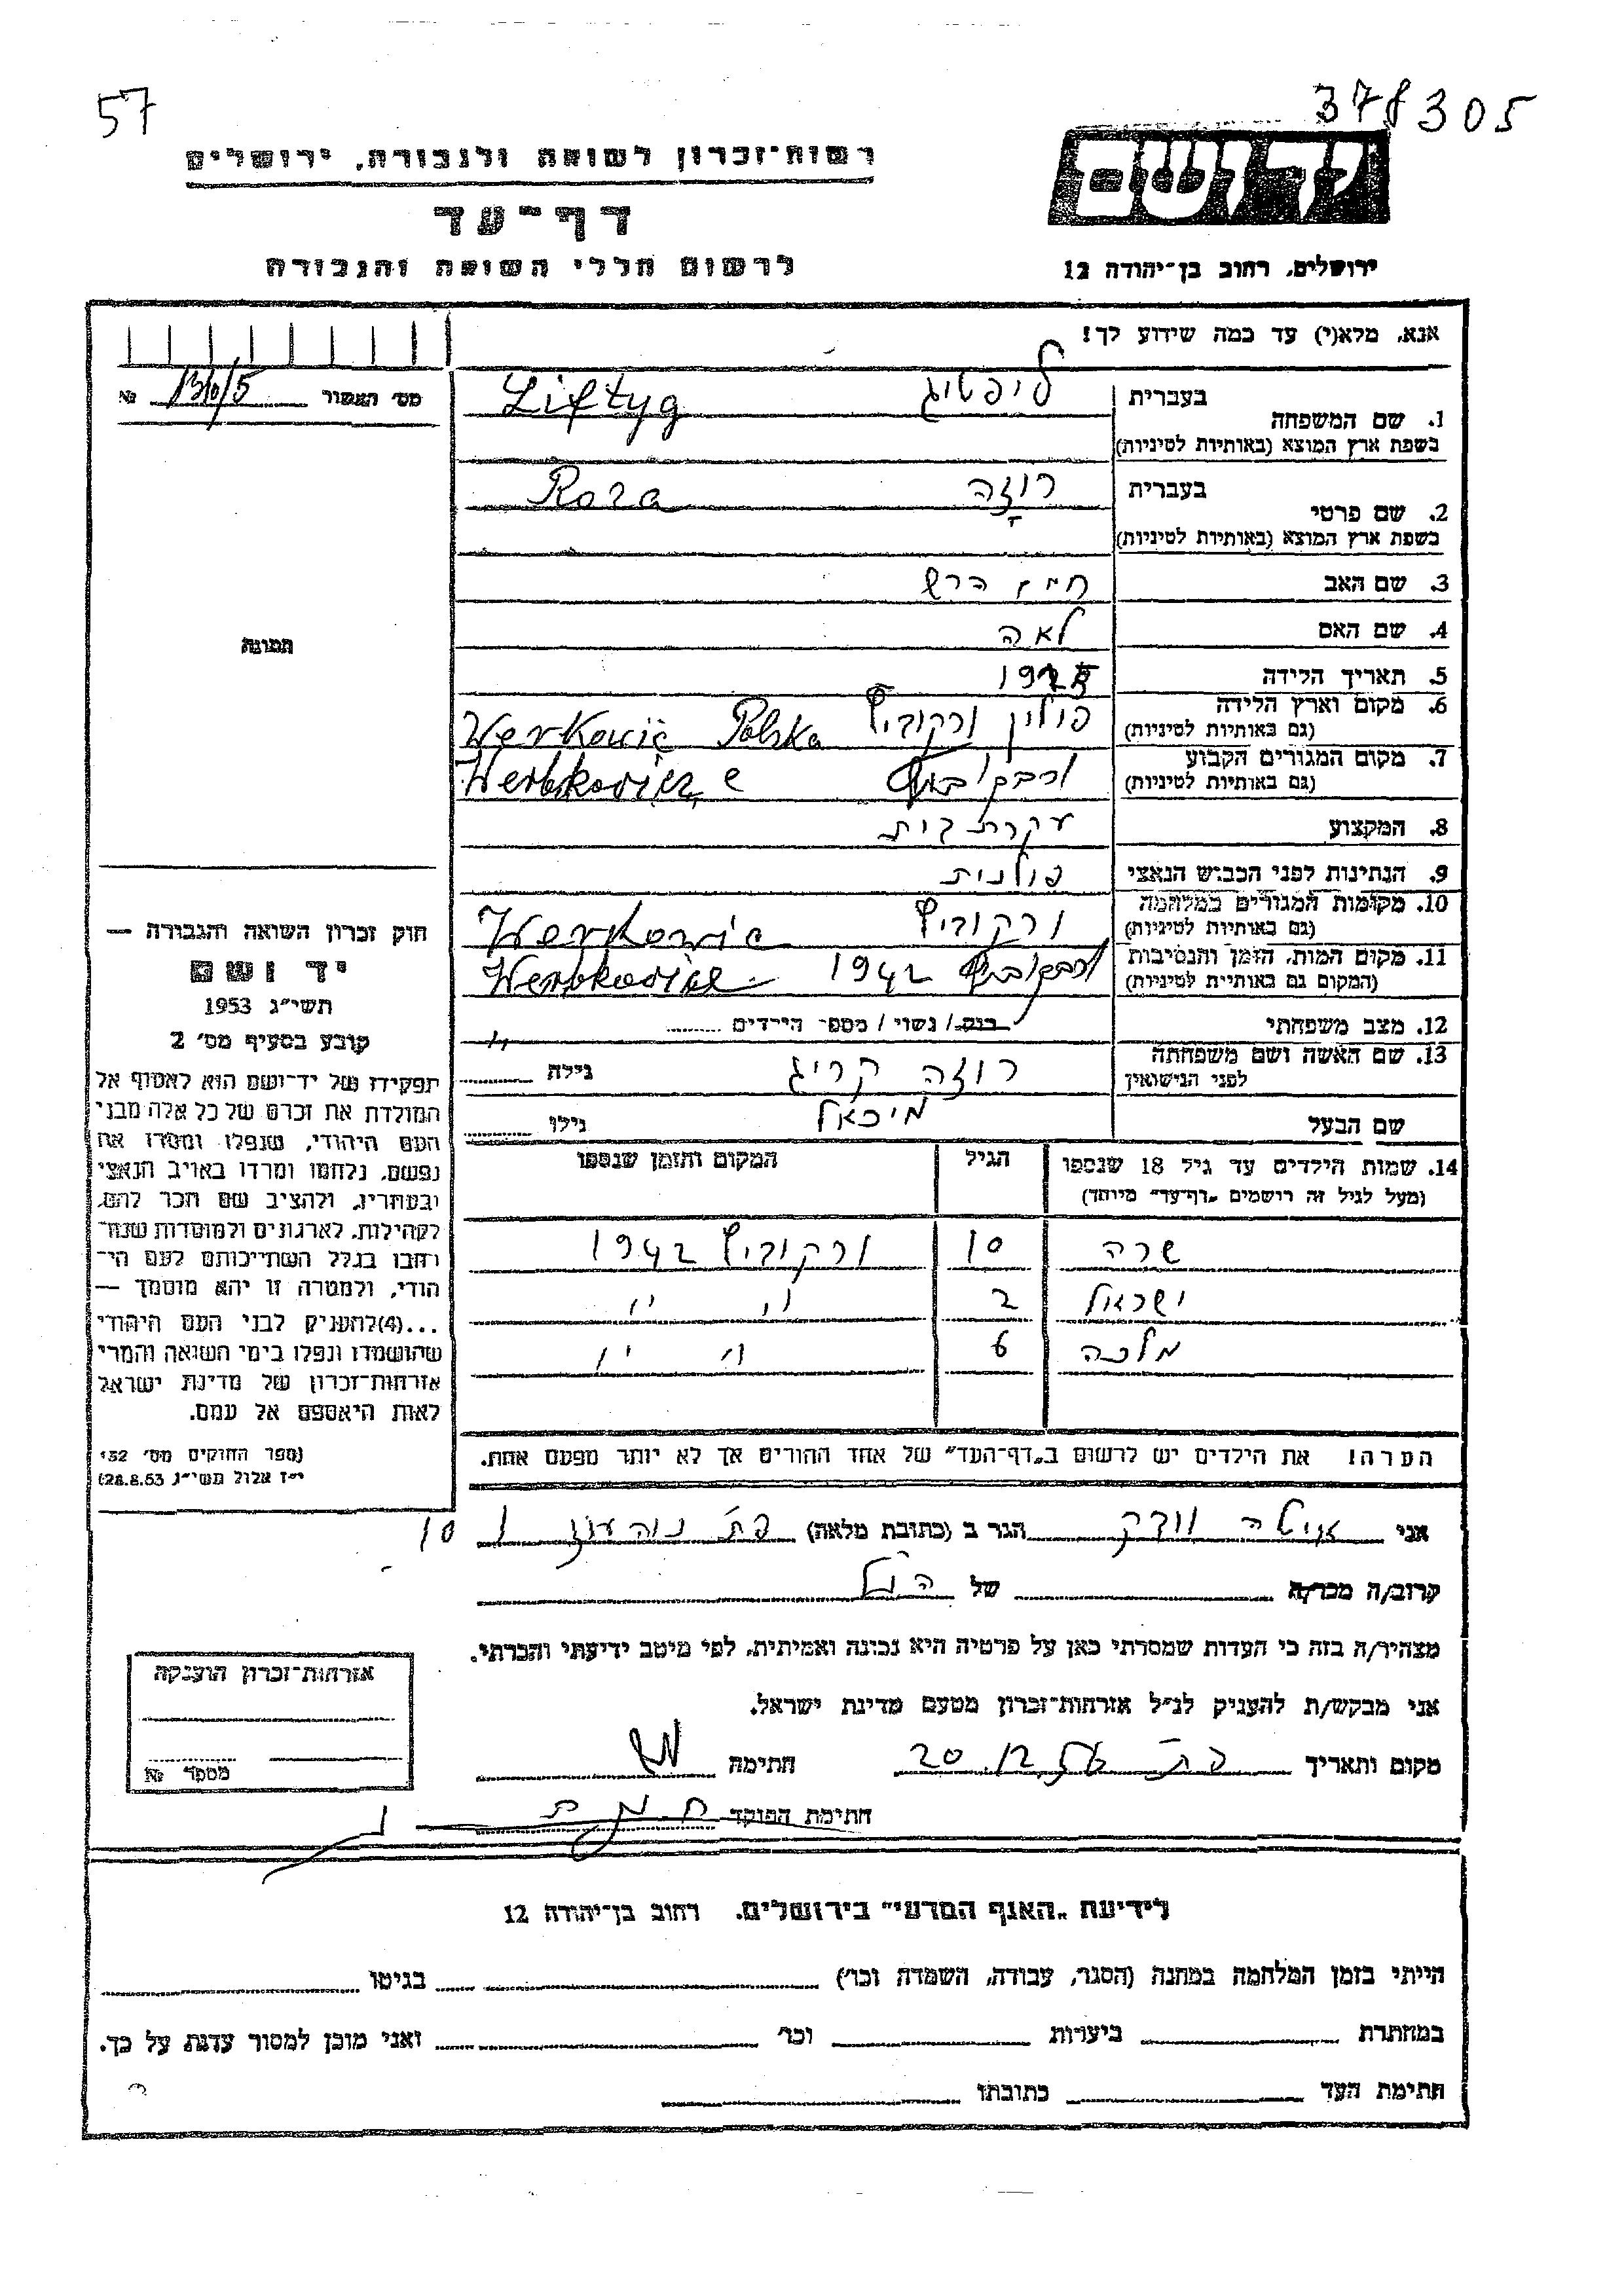 57
378305
רשות-זכרון לשואה ולגבורה, ירושלים
יד ושם
דף-עד
לרשום חללי השואה והגבורה
ירושלים, רחוב בן-יהודה 12
אנא, מלא(י) עד כמה שידוע לך!
מס' האשור № 1310/5
1. שם המשפחה
בעברית ליפטיג Liftyg
בשפת ארץ המוצא (באותיות לטיניות)
2. שם פרטי
בעברית רוזה Roza
בשפת ארץ המוצא (באותיות לטיניות)
3. שם האב
4. שם האם לאה
תמונה
5. תאריך הלידה
6. מקום וארץ הלידה פולין ורקוביץ Polska
(גם באותיות לטיניות)
7. מקום המגורים הקבוע Werbkovicze
(גם באותיות לטיניות)
8. המקצוע עקרת בית
9. הנתינות לפני הכבוש הנאצי פולנית
10. מקומות המגורים במלחמה ורקוביץ Werkowic
(גם באותיות לטיניות)
11. מקום המות, הזמן והנסיבות 1942
(המקום גם באותיות לטיניות)
12. מצב משפחתי רווק / נשוי / מספר הילדים
13. שם האשה ושם משפחתה רוזה קריג גילה
לפני הנישואין
שם הבעל מיכאל גילו
14. שמות הילדים עד גיל 18 שנספו הגיל המקום והזמן שנספו
(מעל לגיל זה רושמים „דף-עד" מיוחד)
שרה 10 ורקוביץ 1942
ישראל 2 " "
מלכה 6 " "
הערה! את הילדים יש לרשום ב„דף-העד" של אחד ההורים אך לא יותר מפעם אחת.
חוק זכרון השואה והגבורה —
יד ושם
תשי"ג 1953
קובע בסעיף מס' 2
תפקידו של יד-ושם הוא לאסוף אל
המולדת את זכרם של כל אלה מבני
העם היהודי, שנפלו ומסרו את
נפשם, נלחמו ומרדו באויב הנאצי
ובעוזריו, ולהציב שם וזכר להם,
לקהילות, לארגונים ולמוסדות שנח-
רבו בגלל השתייכותם לעם הי-
הודי, ולמטרה זו יהא מוסמך —
...(4)להעניק לבני העם היהודי
שהושמדו ונפלו בימי השואה והמרי
אזרחות-זכרון של מדינת ישראל
לאות היאספם אל עמם.
(ספר החוקים מס' 132
י"ז אלול תשי"ג 28.8.53)
אני הגר ב (כתובת מלאה) 10
קרוב/ה מכר/ה של הנ"ל
מצהיר/ה בזה כי העדות שמסרתי כאן על פרטיה היא נכונה ואמיתית, לפי מיטב ידיעתי והכרתי.
אני מבקש/ת להעניק לנ"ל אזרחות-זכרון מטעם מדינת ישראל.
מקום ותאריך חתימה
חתימת הפוקד
אזרחות-זכרון הוענקה
מספר №
לידיעת „האגף המדעי" בירושלים, רחוב בן-יהודה 12
הייתי בזמן המלחמה במחנה (הסגר, עבודה, השמדה וכו') בגיטו
במחתרת ביערות וכו' ואני מוכן למסור עדות על כך.
חתימת העד כתובתו